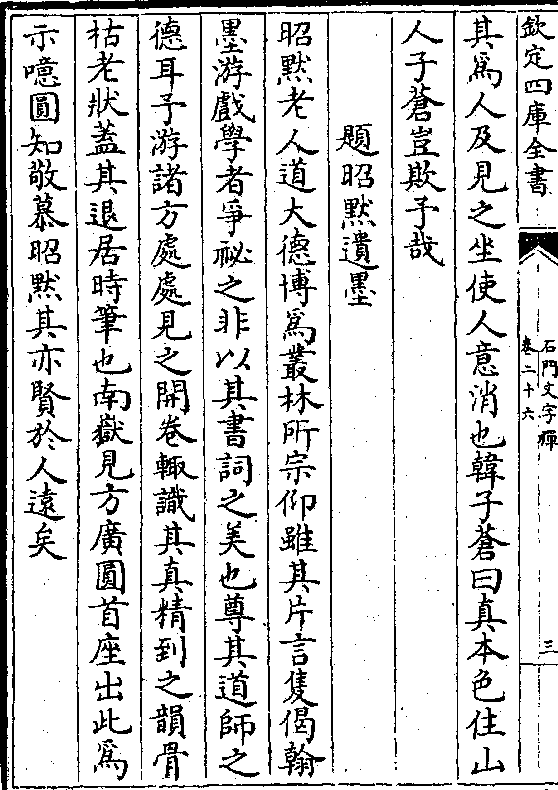 欽定四庫全書
石門文字禪
卷二十六
三
其爲人及見之坐使人意消也韓子蒼曰真本色住山
人子蒼豈欺予哉
題昭默遺墨
昭默老人道大德博爲叢林所宗仰雖其片言隻偈翰
墨游戲學者爭祕之非以其書詞之美也尊其道師之
德耳予游諸方處處見之開卷輙識其真精到之韻骨
枯老狀蓋其退居時筆也南嶽見方廣圓首座出此爲
示噫圓知敬慕昭默其亦賢於人遠矣